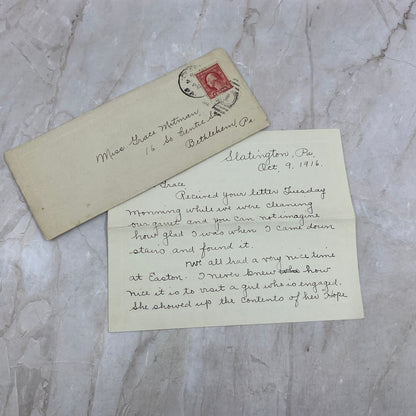 Miss Grace Mitman,
16 So Centre St
Bethlehem, Pa
Slatington, Pa,
Oct, 9, 1916.
Grace
Recived your letter Tuesday
Morning while we were cleaning
our garet and you can not imagine
how glad I was when I came down
stairs and found it.
We all had a very nice time
at Easton. I never knew how
nice it is to visit a girl who is engaged.
She showed up the contents of her Hope